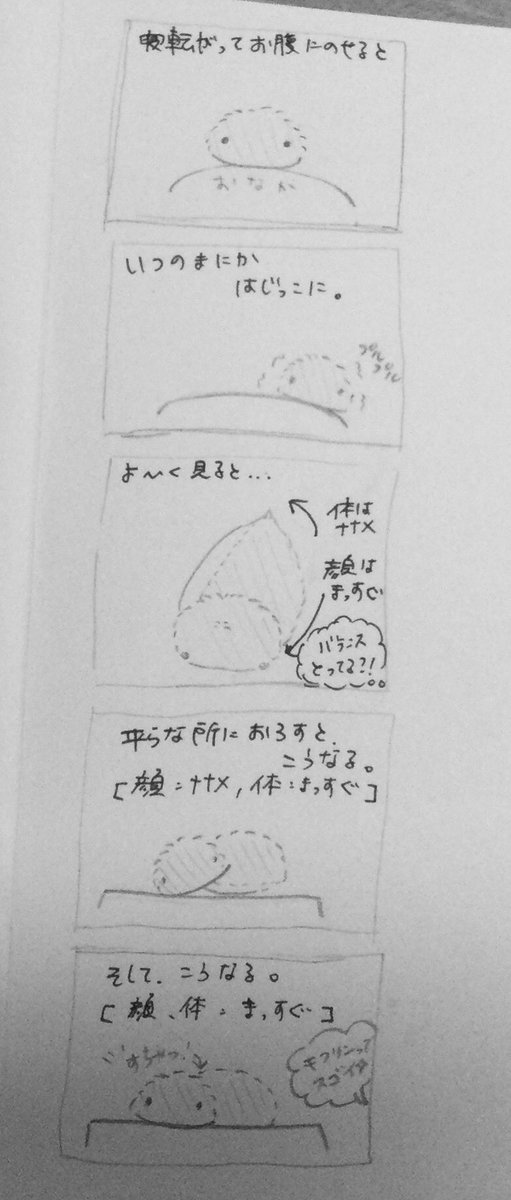 寝転がってお腹にのせると
おなか
いつのまにか
はじっこに。
プル
プル
よ〜く見ると...
体は
ナナメ
顔は
まっすぐ
バランス
とってる?!
平らな所におろすと、
こうなる。
[顔:ナナメ,体:まっすぐ]
そして、こうなる。
[顔、体:まっすぐ]
すちゃっ!
って
スゴイナ